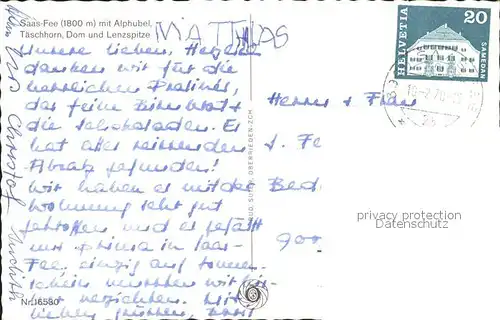 Saas-Fee (1800 m) mit Alphubel,
Täschhorn, Dom und Lenzspitze
MATTHIAS
Unsere lieben, Herzlich
danken wir für die
herrlichen Pralinés,
das feine Birnbrot +
die Schokoladen. Es
hat alles reissenden
Absatz gefunden!
Wir haben es mit der
Wohnung sehr gut
getroffen und es gefällt
uns prima in Saas-
Fee, einzig auf Sonnen-
schein mussten wir bis-
verzichten. Mit
lieben Grüssen,
Christof
Nr. 16580
HELVETIA 20
SAMEDAN
Herrn + Frau
S. Fe
Bed
900
privacy protection
Datenschutz